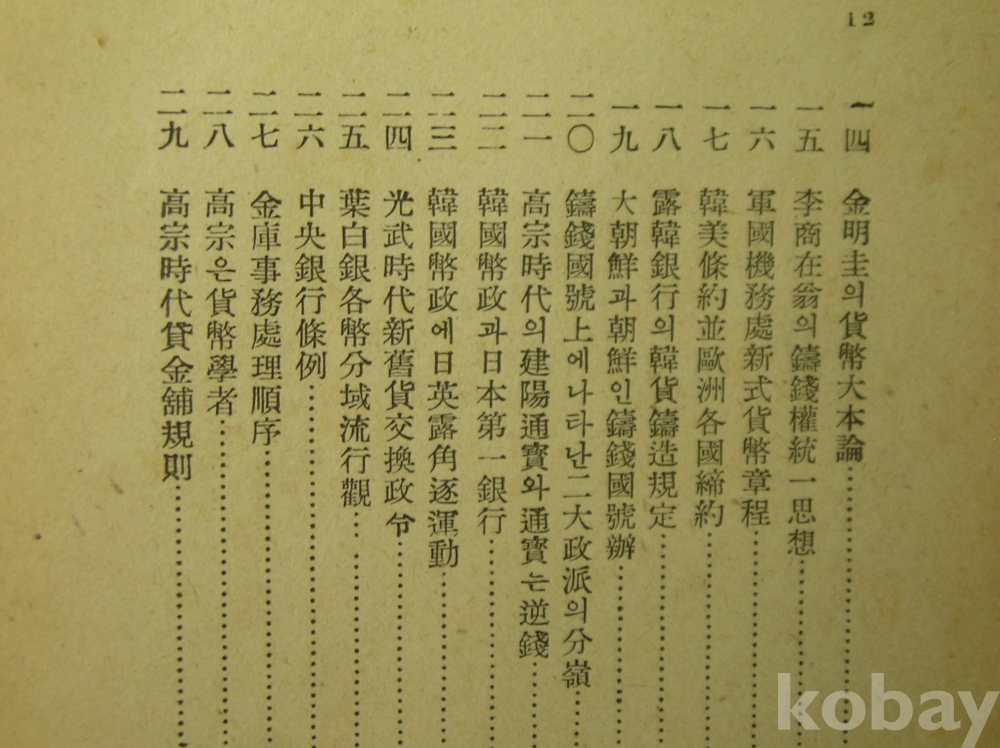 12
一四 金明圭의貨幣大本論
一五 李商在翁의鑄錢權統一思想
一六 軍國機務處新式貨幣章程
一七 韓美條約並歐洲各國締約
一八 露韓銀行의韓貨鑄造規定
一九 大朝鮮과朝鮮인鑄錢國號辦
二〇 鑄錢國號上에나타난二大政派의分嶺
二一 高宗時代의建陽通寶와通寶는逆錢
二二 韓國幣政과日本第一銀行
二三 韓國幣政에日英露角逐運動
二四 光武時代新舊貨交換政令
二五 葉白銀各幣分域流行觀
二六 中央銀行條例
二七 金庫事務處理順序
二八 高宗은貨幣學者
二九 高宗時代貸金舖規則
kobay